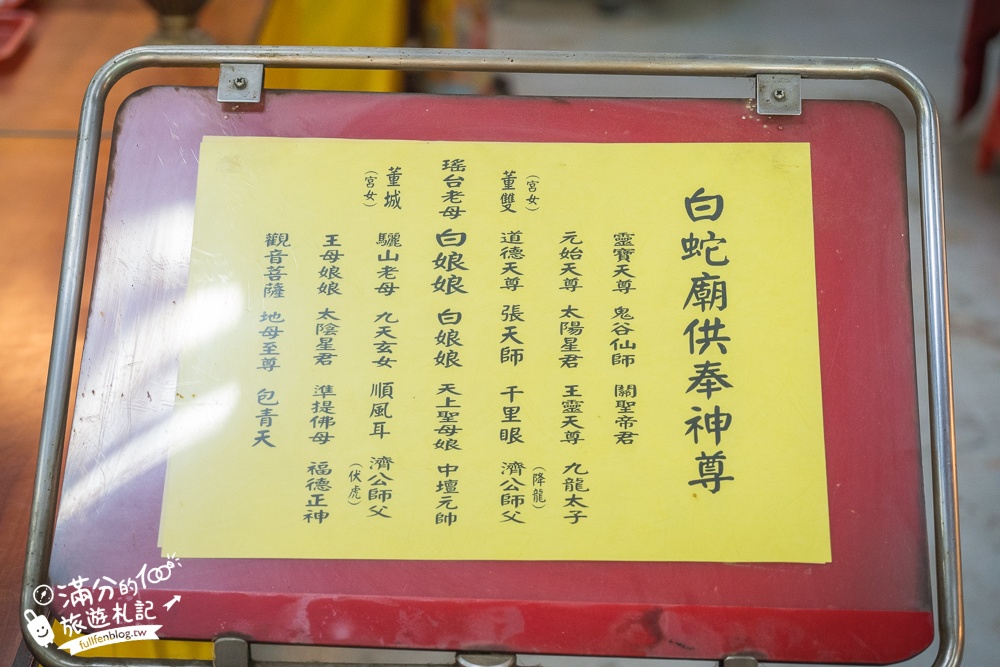 白蛇廟供奉神尊
靈寶天尊 鬼谷仙師 關聖帝君
元始天尊 太陽星君 王靈天尊 九龍太子
(宮女) (降龍)
董雙 道德天尊 張天師 千里眼 濟公師父
瑤台老母 白娘娘 白娘娘 天上聖母娘 中壇元帥
董城 驪山老母 九天玄女 順風耳 濟公師父
(宮女) (伏虎)
王母娘娘 太陰星君 準提佛母 福德正神
觀音菩薩 地母至尊 包青天
滿分的
旅遊札記
fullfenblog.tw